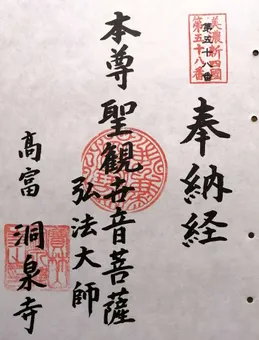 美濃新四國
第五十八番
奉納経
本尊聖観世音菩薩
弘法大師
高富
洞泉寺